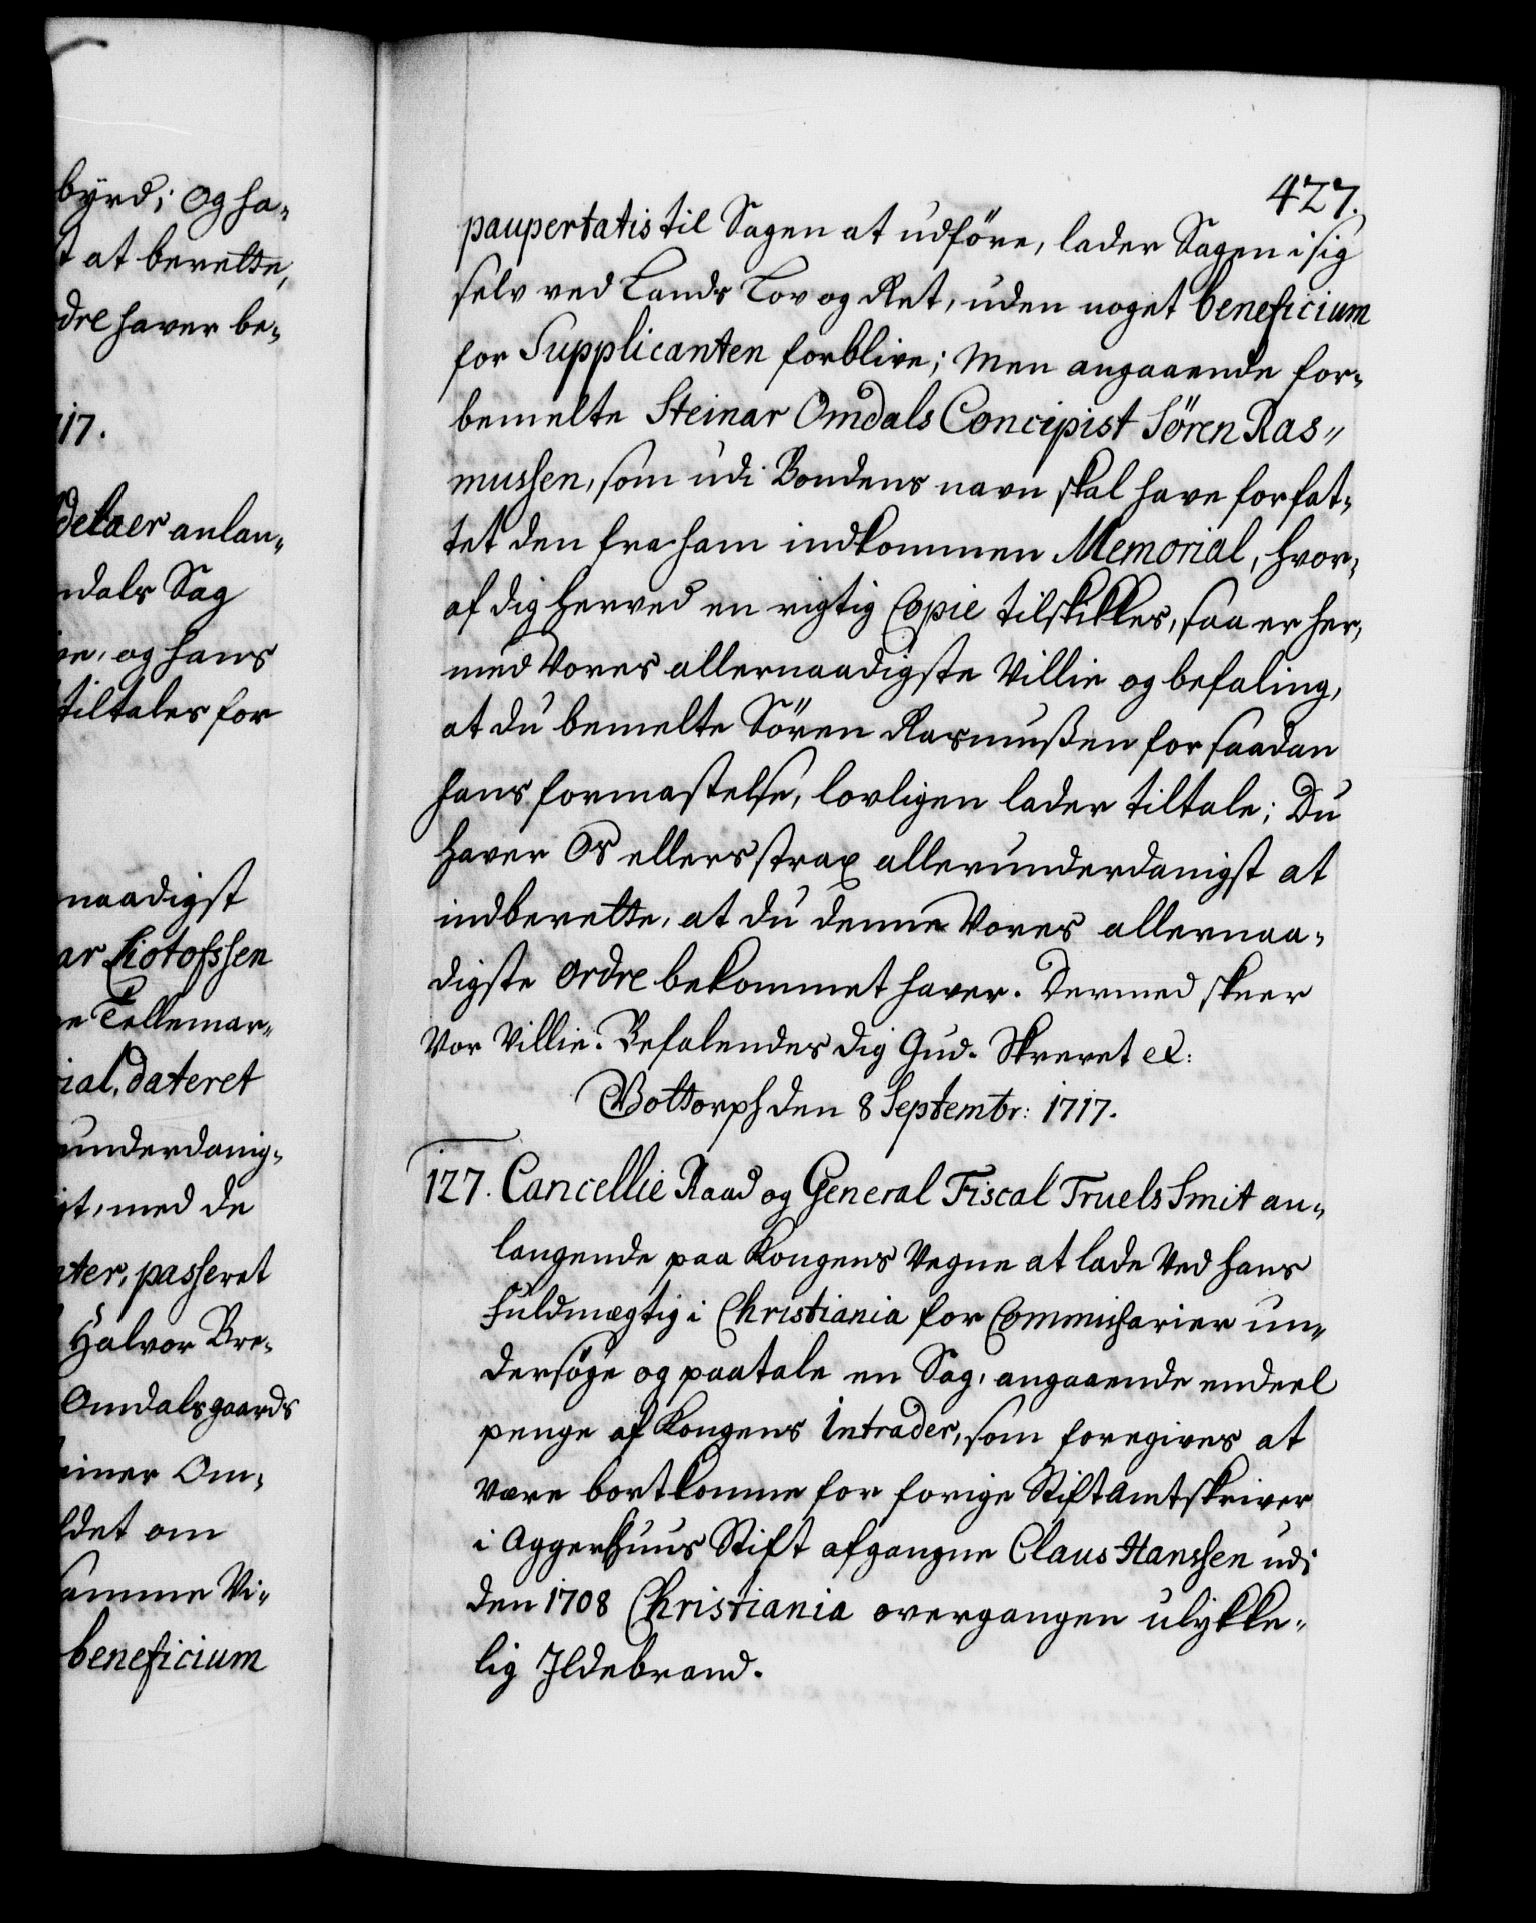 byrd; Og ha-
at berette,
dre haver be-
17.
delaer anlan-
ndals Sag
og hans
tiltales for
naadigst
ar Liotofssen
Tellemar-
ial, dateret
underdanig-
med de
ter, passeret
Halvor Bre-
Omdalsgaards
einer Om-
det om
samme Vi-
beneficium
427.
paupertatis til Sagen at udföre, lader Sagen i sig
selv ved Lands Lov og Ret, uden noget beneficium
for Supplicanten forblive; Men angaaende for-
bemelte Steinar Omdals Concipist Sören Ras-
mussen, som udi Bondens navn skal have forfat-
tet den fra ham indkommen Memorial, hvor-
af dig herved en rigtig Copie tilskikkes, saa er her-
med Vores allernaadigste Villie og befaling,
at du bemelte Sören Rasmußen for saadan
hans formastelse, lovligen lader tiltale; Du
haver Os ellers strax allerunderdanigst at
indberette, at du denne Vores allernaa-
digste Ordre bekommet haver. Dermed skeer
Vor Villie. Befalendes dig Gud. Skrevet et:
Gottorph den 8 Septembr: 1717.
127. Cancellie Raad og General Fiscal Truels Smit an-
langende paa Kongens Vegne at lade Ved hans
Fuldmægtig i Christiania for Commissarier un-
dersøge og paatale en Sag, angaaende endeel
penge af Kongens Intrader, som foregives at
være bortkomne for forige Stiftamtskriver
i Aggerhuus Stift afgangne Claus Hanssen udi
den 1708 Christiania overgangen ulykke-
lig Ildebrand.